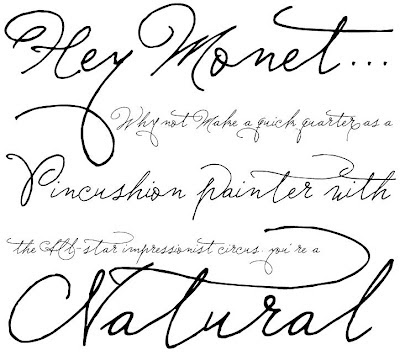 Hey Monet...
Why not Make a quick quarter as a
Pincushion painter with
the All-star impressionist circus. you're a
Natural